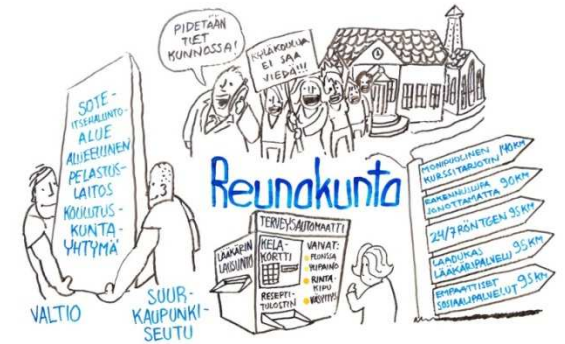 PIDETÄÄN
TIET
KUNNOSSA!
KYLÄKOULUA
EI SAA
VIEDÄ!!!
SOTE-
ITSEHALLINTO-
ALUE
ALUEELLINEN
PELASTUS-
LAITOS
KOULUTUS-
KUNTA-
YHTYMÄ
VALTIO
SUUR-
KAUPUNKI-
SEUTU
Reunakunta
TERVEYSAUTOMAATTI
LÄÄKÄRIN
LAUSUNTO
KELA-
KORTTI
RESEPTI-
TULOSTIN
VAIVAT:
FLUNSSA
YLIPAINO
RINTA-
KIPU
VÄSYMYS
MONIPUOLINEN
KURSSITARJOTIN 140 KM
RAKENNUSLUPA
JONOTTAMATTA 90 KM
24/7 RÖNTGEN 95 KM
LAADUKAS
LÄÄKÄRIPALVELU 95 KM
EMPAATTISET
SOSIAALIPALVELUT 95 KM